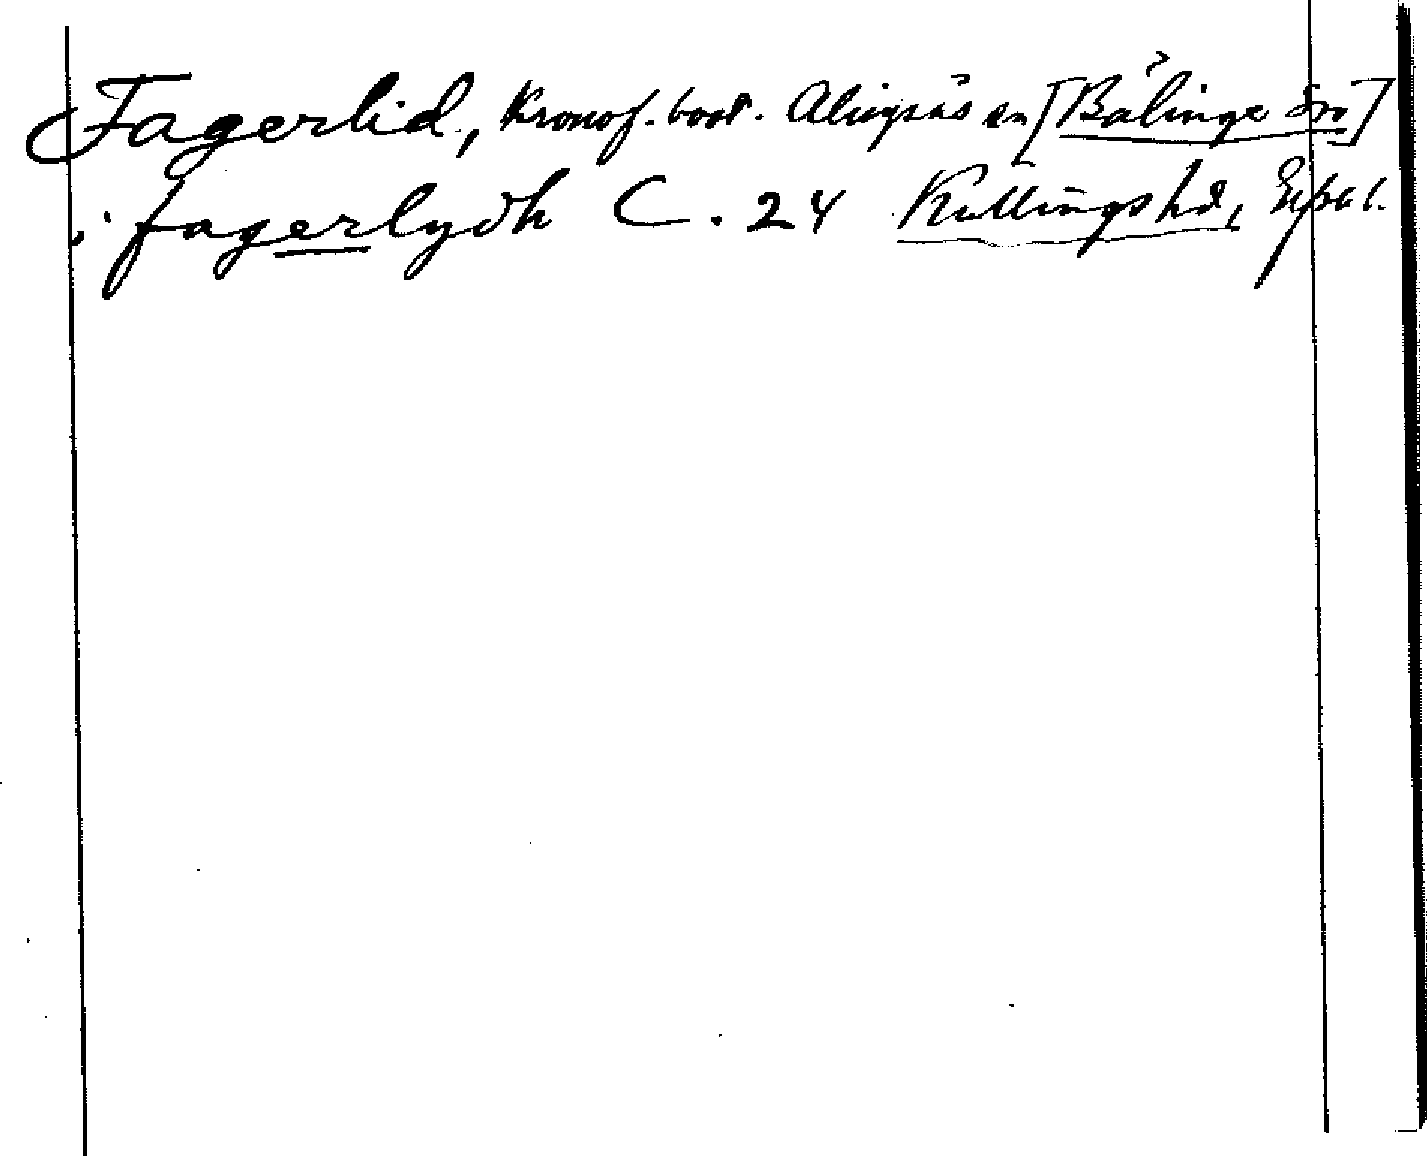 Fagerlid, Kronof. bost. Alingsås sn [Bälinge sn]
i fagerlydh C. 24 Kullings hd, Elfsb. l.